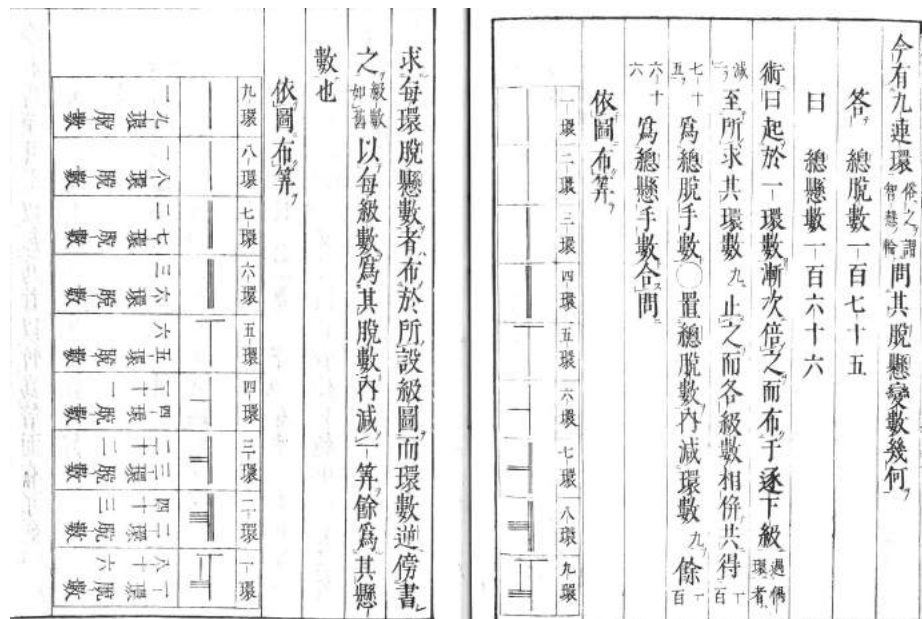 今有九連環俗之謂智慧輪問其脱懸變數幾何
答　總脱數一百七十五
曰　總懸數一百六十六
術曰起於一環數漸次倍之而布于逐下級過偶環者
減一至所求其環數九止之而各級數相併共得一百
七十五爲總脱手數〇置總脱數內減環數九餘一百
六十六爲總懸手數合問
依圖布筭
一環 二環 三環 四環 五環 六環 七環 八環 九環
求每環脱懸數者布於所設級圖而環數逆傍書
之級數如舊以每級數爲其脱數內減一筭餘爲其懸
數也
依圖布筭
九環 八環 七環 六環 五環 四環 三環 二環 一環
九環脱數一
八環脱數一
七環脱數二
六環脱數三
五環脱數六
四環脱數一十一
三環脱數二十二
二環脱數四十三
一環脱數八十六